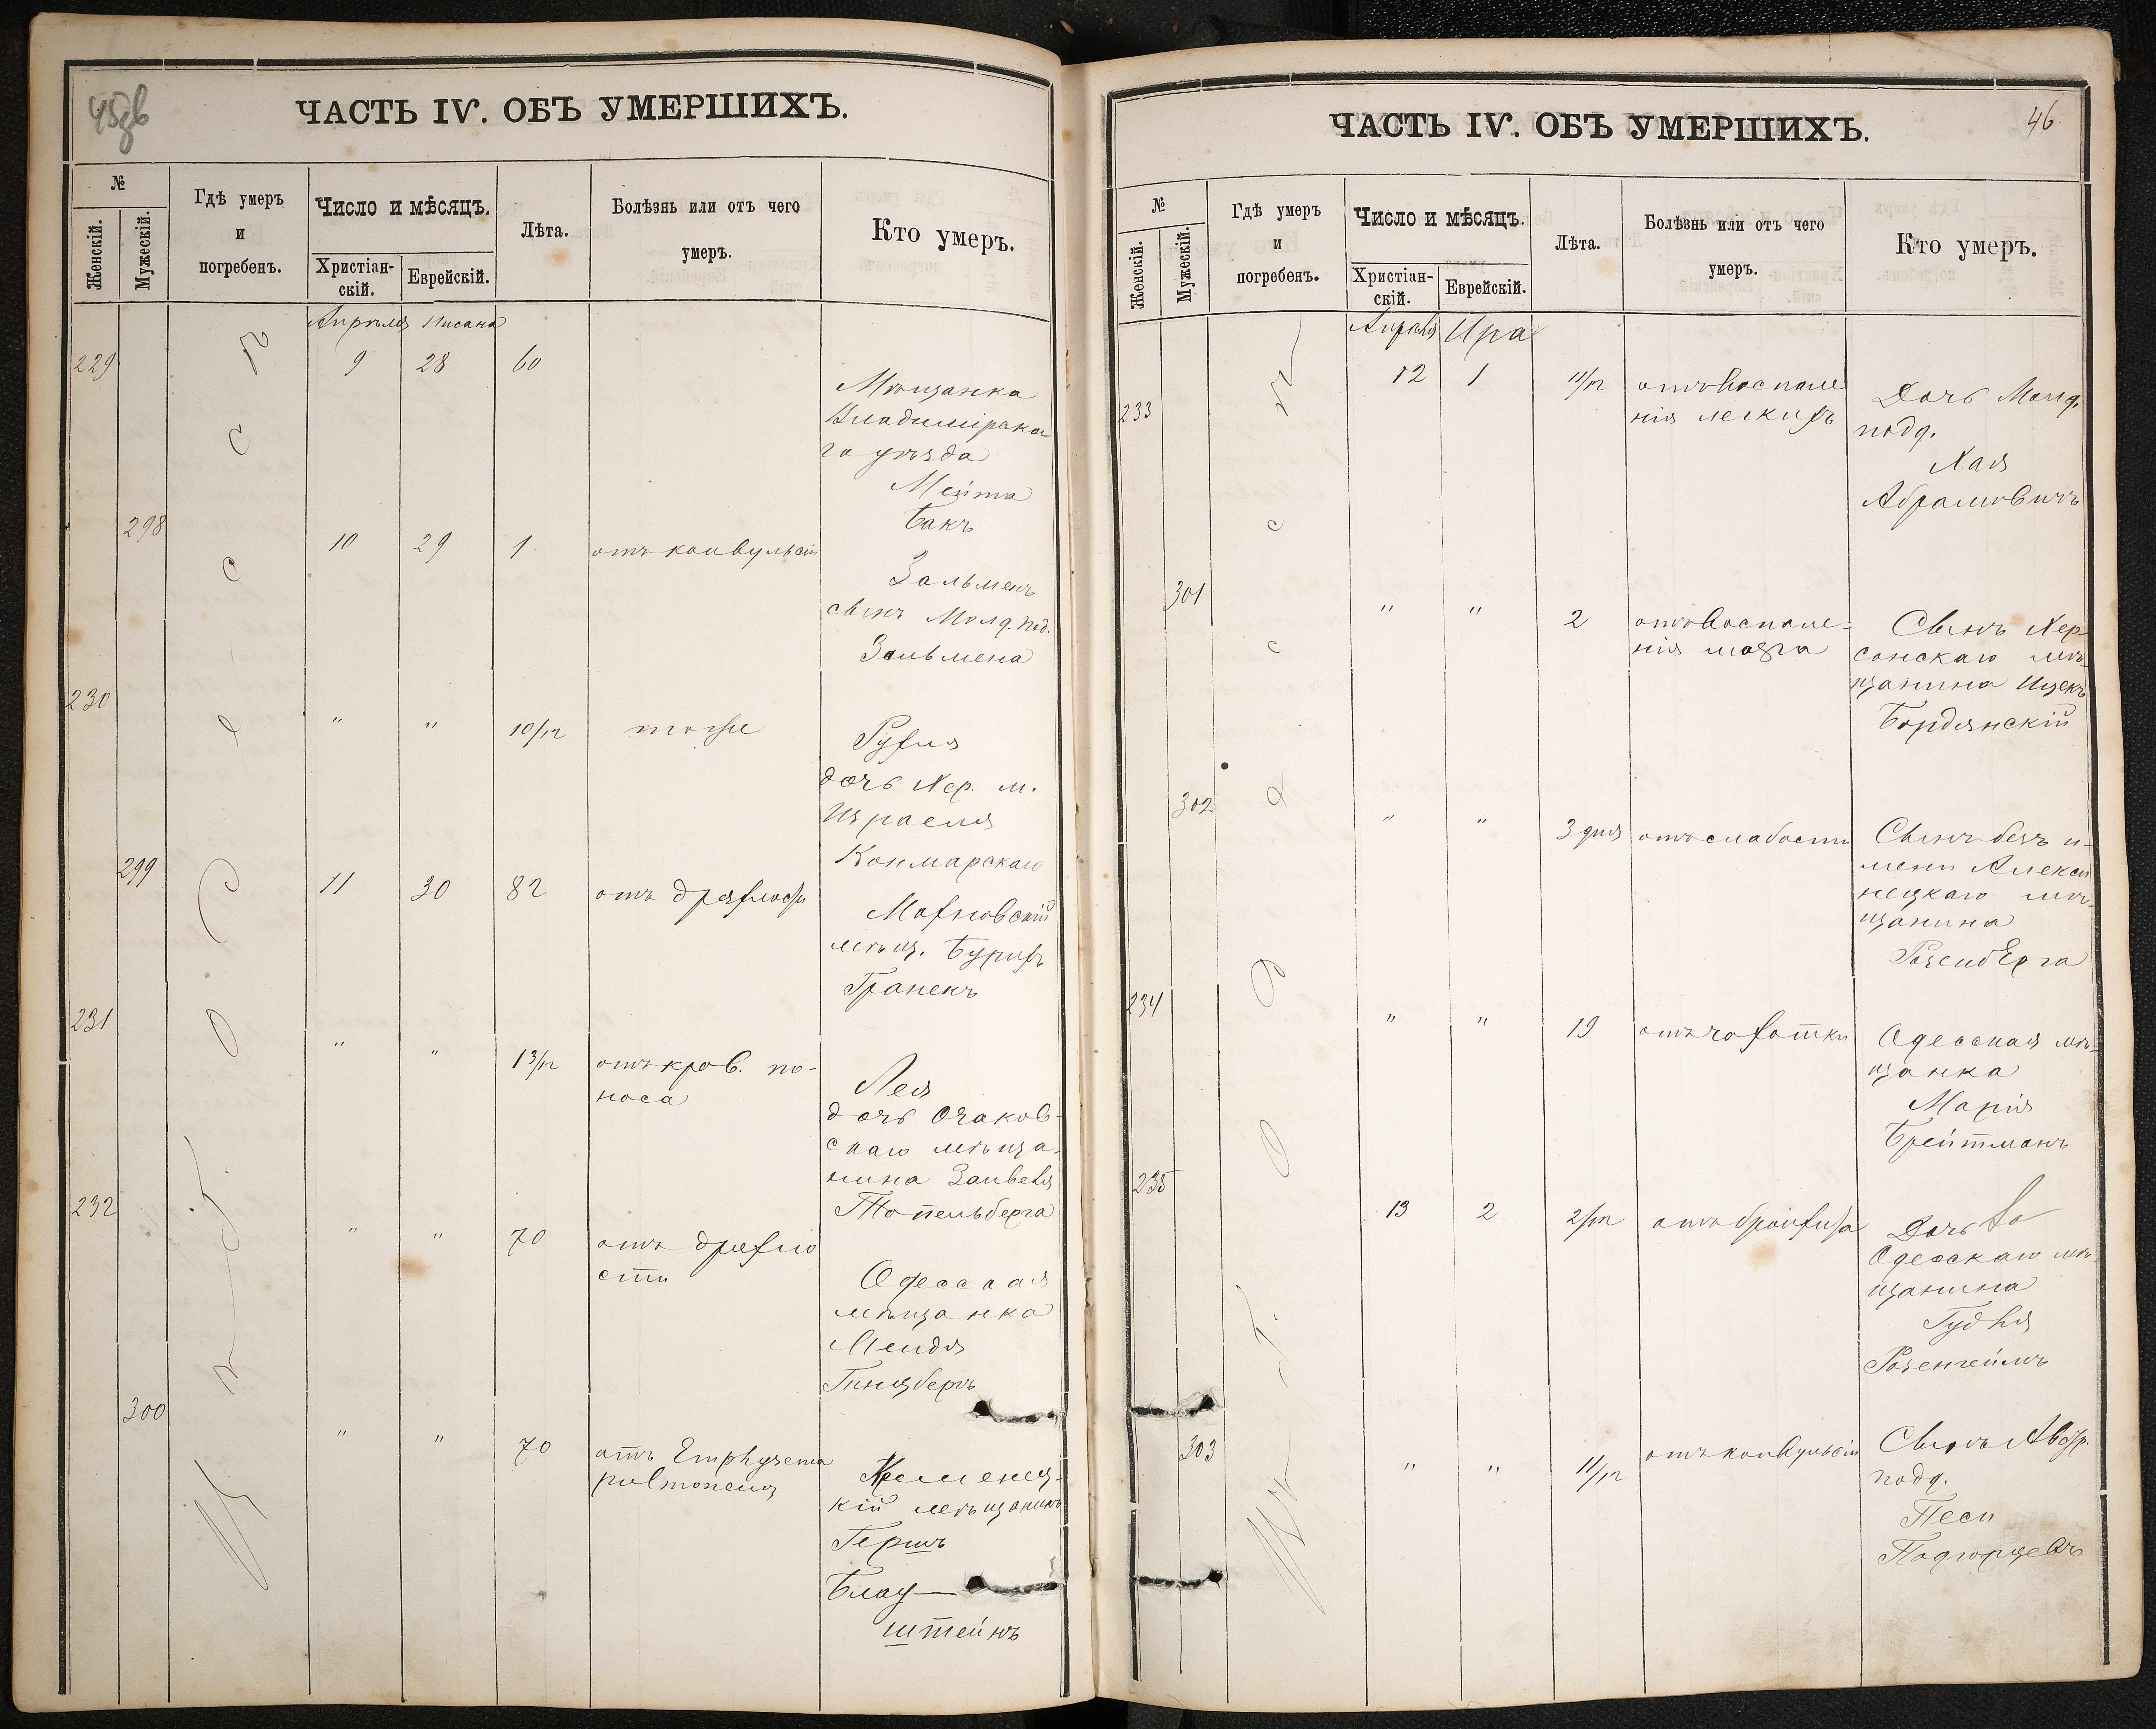 45об
ЧАСТЬ IV. ОБЪ УМЕРШИХЪ.
№
Женскій.
Мужескій.
Гдѣ умеръ
и
погребенъ.
Число и мѣсяцъ.
Христіан-
скій.
Еврейскій.
Лѣта.
Болѣзнь или отъ чего
умеръ.
Кто умеръ.
Апрѣля Нисана
229 9 28 60
Мѣщанка
Владимірска
го уѣзда
Мейта
Бакъ
298 10 29 1 отъ конвульсій
Зальменъ
сынъ Молд. под.
Зальмена
230 " " 10/12 тоже
Рухля
дочь Хер. м.
Израеля
Конмарскаго
299 11 30 82 отъ дряхлости
Махновскій
мѣщ. Бурихъ
Гранекъ
231 " " 13/12 отъ кров. по-
носа
Лея
дочь Очаков-
скаго мѣща-
нина
Топельберга
232 " " 70 отъ дряхло
сти
Одесская
мѣщанка
Мендя
Гинзбергъ
300 " " 70 отъ Emphysema
pulmoneus
Кременец-
кій мѣщанинъ
Гершъ
Блау-
штейнъ
Одесса
46.
ЧАСТЬ IV. ОБЪ УМЕРШИХЪ.
№
Женскій.
Мужескій.
Гдѣ умеръ
и
погребенъ.
Число и мѣсяцъ.
Христіан-
скій.
Еврейскій.
Лѣта.
Болѣзнь или отъ чего
умеръ.
Кто умеръ.
Апрѣля Ира
233 12 1 11/12 отъ воспале
нія легкихъ
Дочь Молд.
подд.
Хая
Абрамовичъ
301 " " 2 отъ воспале-
нія мозга
Сынъ Хер-
сонскаго мѣ-
щанина Ицекъ
Бордянскій
302 " " 3 дня отъ слабости
Сынъ безъ и-
мени Алекси
нецкаго мѣ-
щанина
Розенберга
234 " " 19 отъ чахотки
Одесская мѣ-
щанка
Марія
Брейтманъ
235 13 2 2/12 отъ бронхита
Дочь
Одесскаго мѣ-
щанина
Гудля
Розенгеймъ
303 " " 11/12 отъ конвульсій
Сынъ Австр.
подд.
Песи
Подгорцевъ
Одесса